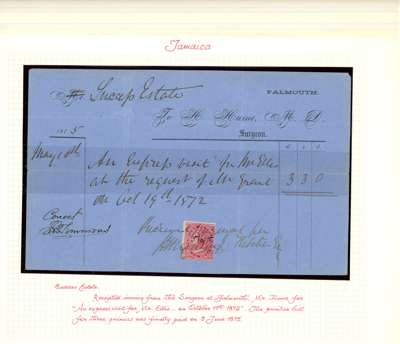 Jamaica
Sucess Estate
FALMOUTH.
To H. Hume, M. D.
Surgeon.
May 10th An Express visit for Mr Ellis
at the request of Mr Grant 3 3 0
on Oct 19th 1872
Correct
Simmons
Sucess Estate.
Receipted invoice from the Surgeon at Falmouth, Mr. Hume for
"An express visit for Mr. Ellis on October 19th 1872". The position bill
for three guineas was finally paid on 3 June 1875.